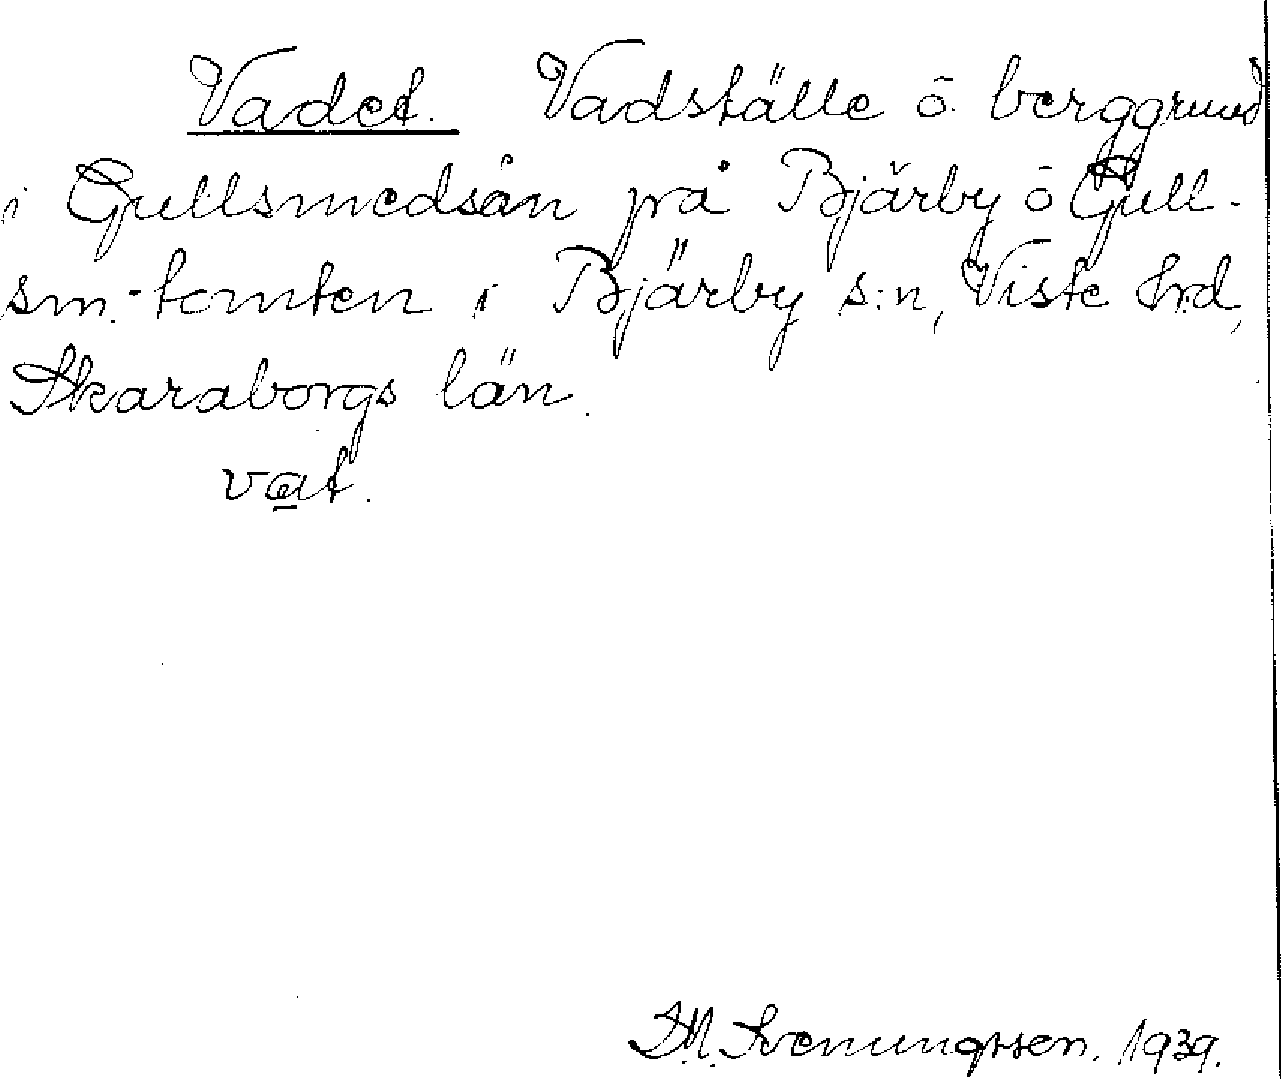 Vadet. Vadställe ö berggrund
i Gullsmedsån på Bjärby ö Gull-
sm.-tomten i Bjärby s:n, Viste hrd,
Skaraborgs län.
vat.
D.M. Svenungsson. 1939.